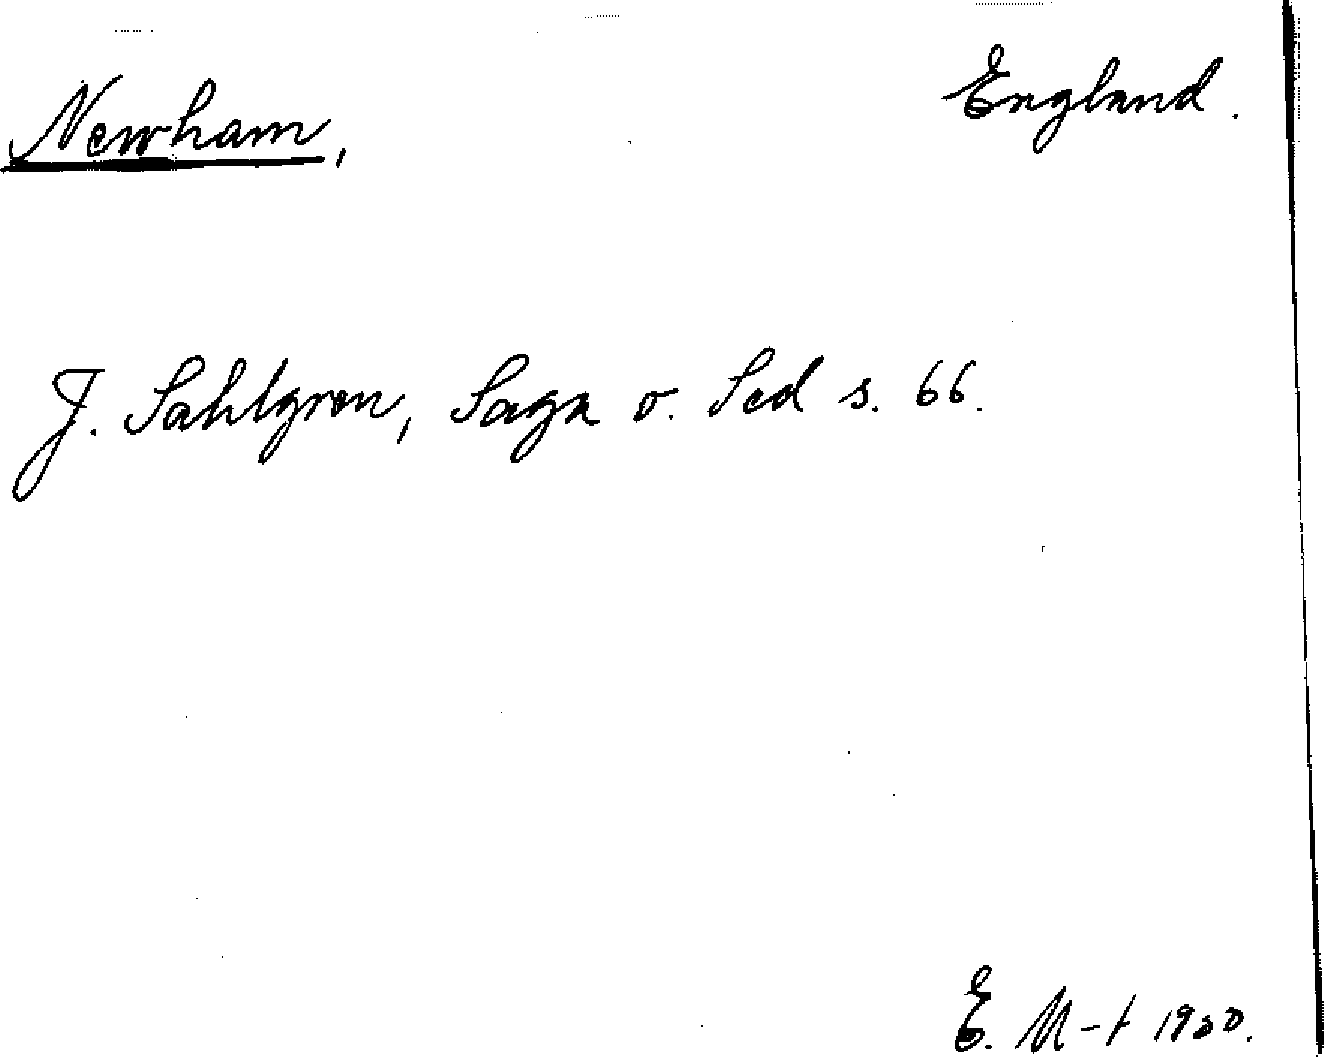 Newham, England.
J. Sahlgren, Saga o. Sed s. 66.
E. M-t 1950.